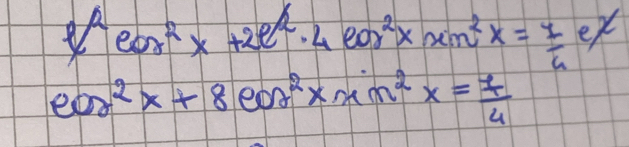 l² cos²x + 2l² · 4 cos²x sin²x = 7/4 l²
cos²x + 8 cos²x sin²x = 7/4